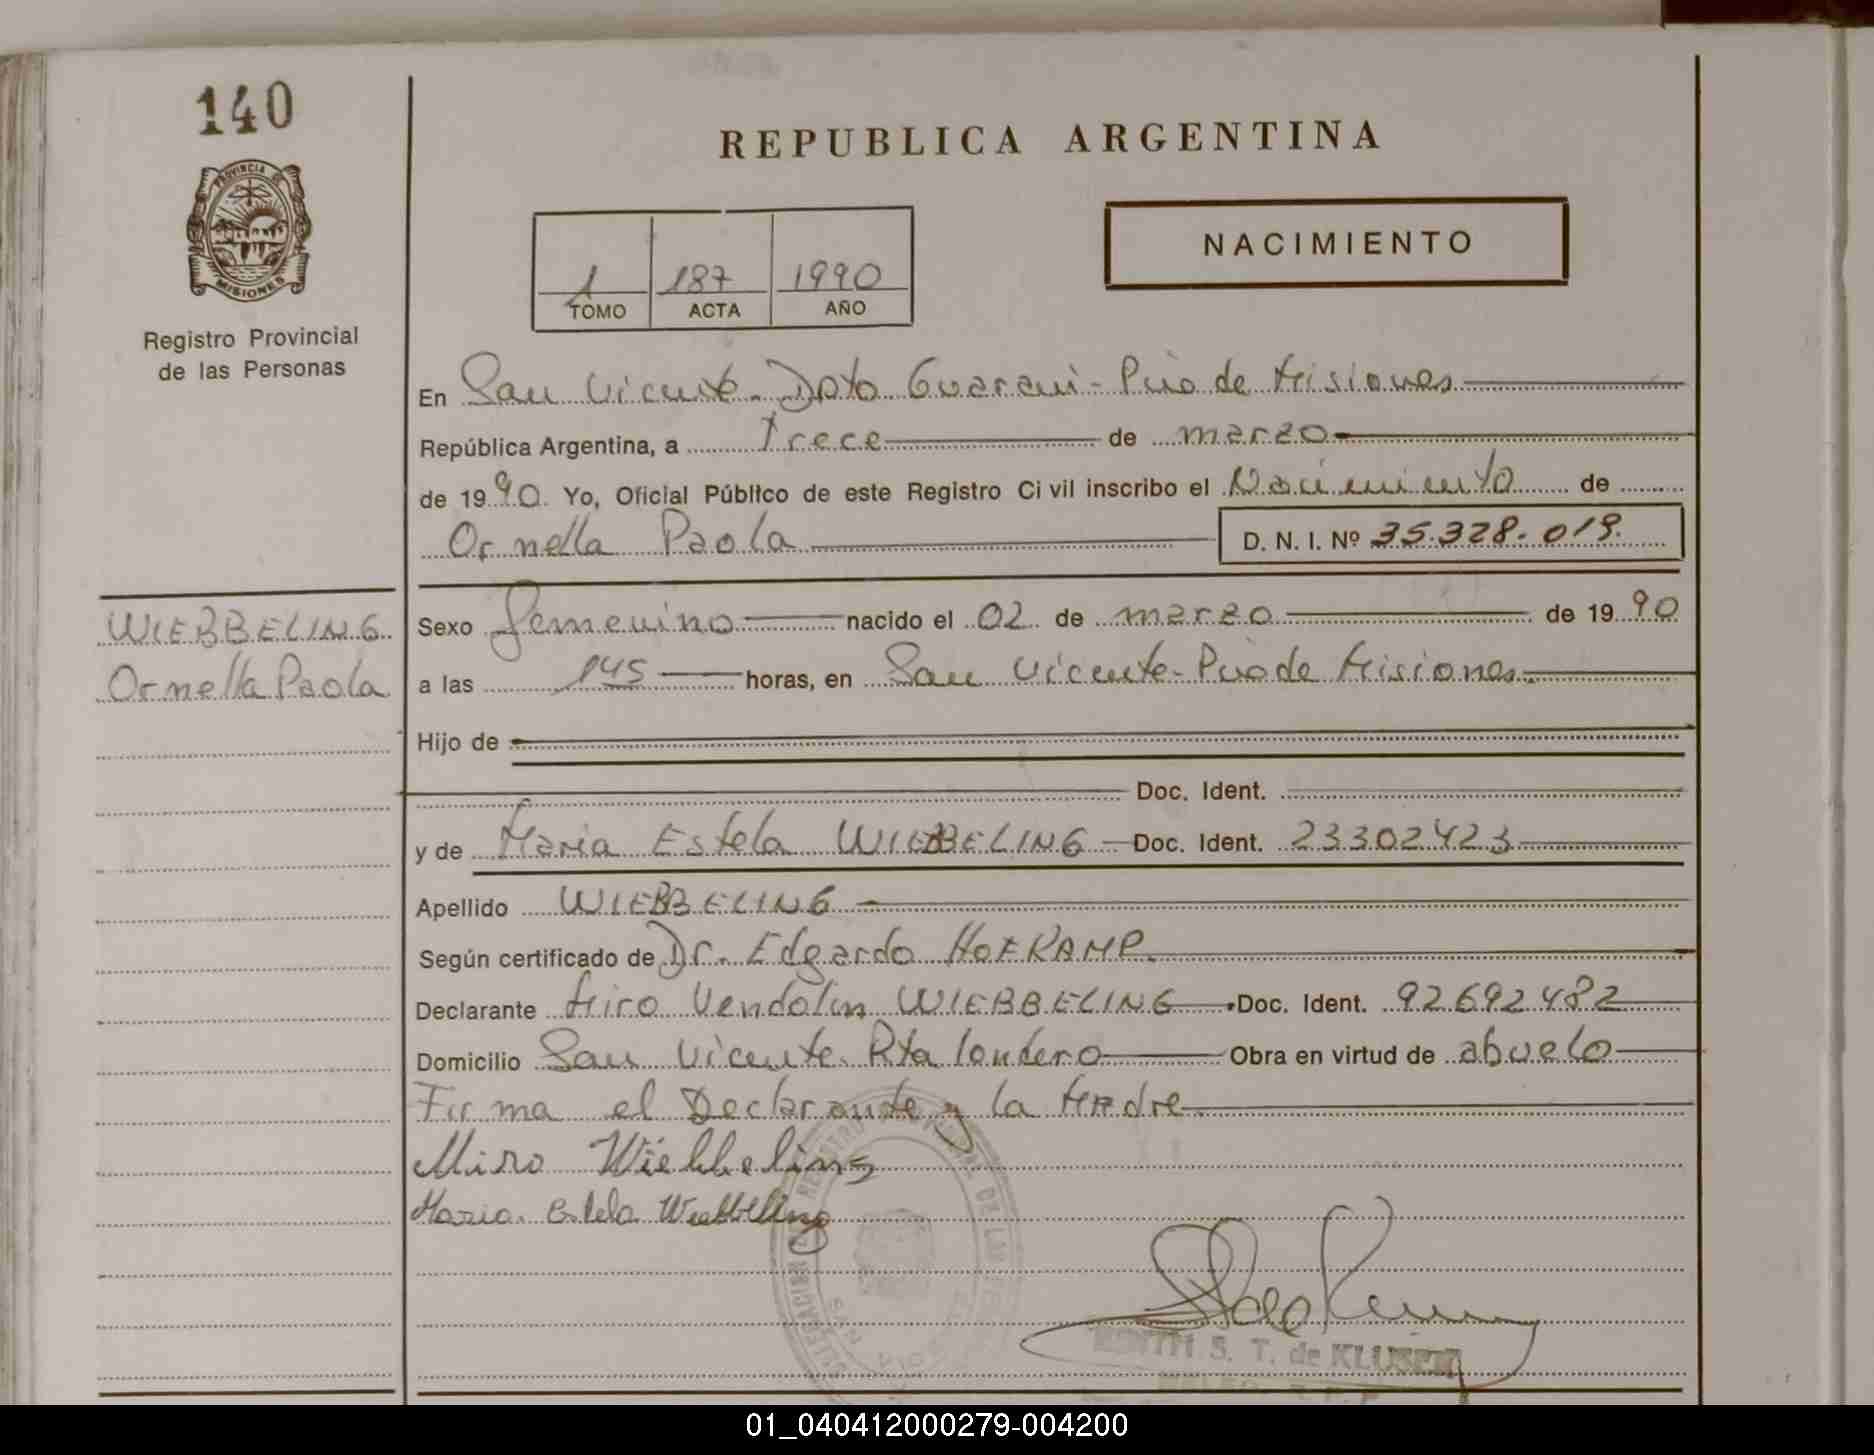 140
REPUBLICA ARGENTINA
PROVINCIA DE
MISIONES
NACIMIENTO
1 187 1990
TOMO ACTA AÑO
Registro Provincial
de las Personas
En San Vicente - Dpto Guarani - Pcia de Misiones
República Argentina, a Trece de marzo
de 1990. Yo, Oficial Público de este Registro Civil inscribo el Nacimiento de
Ornella Paola D. N. I. Nº 35.328.019.
WIEBBELING
Ornella Paola
Sexo femenino nacido el 02 de marzo de 1990
a las 145 horas, en San Vicente - Pcia de Misiones.
Hijo de
Doc. Ident.
y de Maria Estela WIEBBELING Doc. Ident. 23302423
Apellido WIEBBELING
Según certificado de Dr. Edgardo HOFKAMP.
Declarante Miro Vendolin WIEBBELING Doc. Ident. 92692482
Domicilio San Vicente - Pta londero Obra en virtud de abuelo
Firma el Declarante y la Madre
Miro Wiebbeling
Maria Estela Wiebbeling
S. T. de KLUSEN
01_040412000279-004200